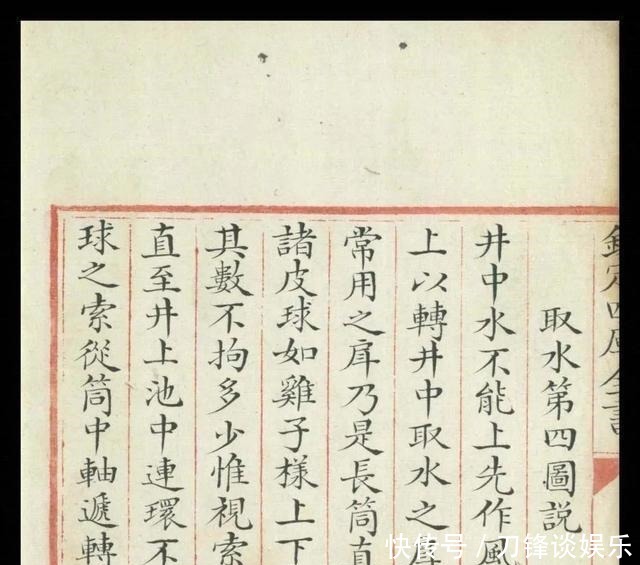 欽定四庫全書
取水第四圖説
井中水不能上先作風
上以轉井中取水之
常用之戽乃是長筒直
諸皮球如雞子樣上下
其數不拘多少惟視索
直至井上池中連環不
球之索從筒中軸遞轉
快传号/刀锋谈娱乐